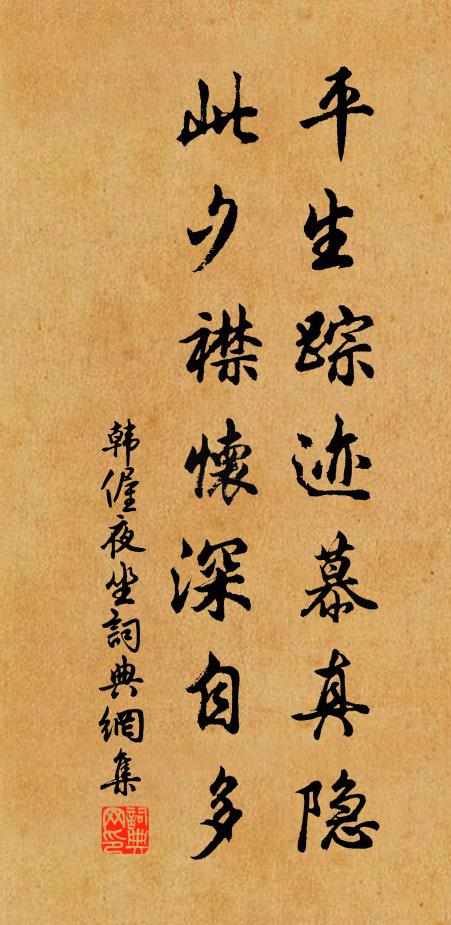 平生踪迹慕真隐
此夕襟懷深自多
韩偓夜坐詞典網集
詞典网印